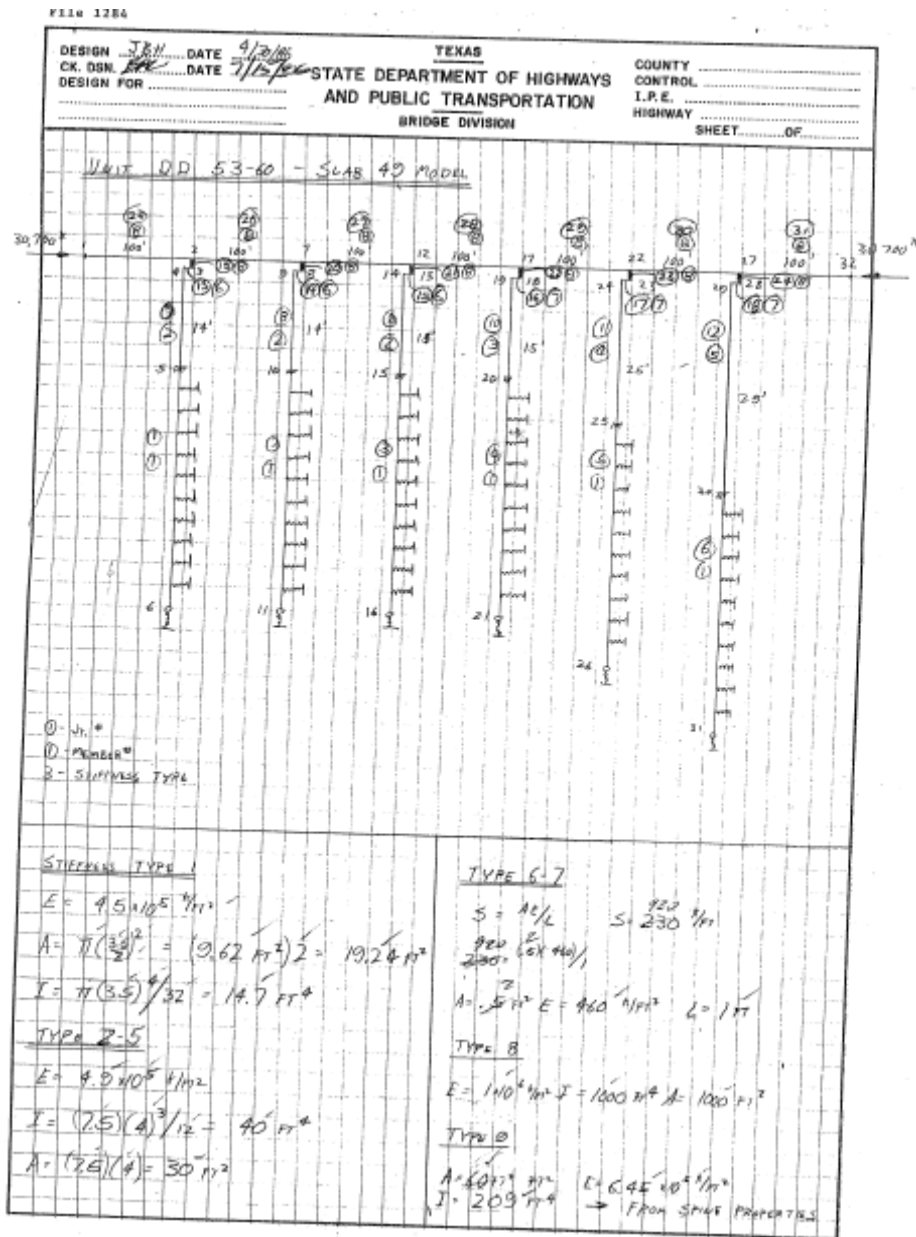 File 1284
DESIGN JBH DATE 4/30/86
CK. DSN. DATE 7/15/86
DESIGN FOR
TEXAS
STATE DEPARTMENT OF HIGHWAYS
AND PUBLIC TRANSPORTATION
BRIDGE DIVISION
COUNTY
CONTROL
I.P.E.
HIGHWAY
SHEET OF
UNIT DD 53-60 - SLAB 49 MODEL
30,700 K
100' 2 100' 7 100' 12 100' 17 100 22 100 27 100' 32
30,700 K
4 3 9 8 14 13 19 18 24 23 29 28
14' 14' 15' 15' 25' 25'
5 10 15 20 25 30
6 11 16 21 26 31
① - JT. #
① - MEMBER #
3 - STIFFNESS TYPE
STIFFNESS TYPE 1
E = 4.5x10⁵ k/FT²
A = π(3.5/2)² = (9.62 FT²)2 = 19.24 FT²
I = π(3.5)⁴/32 = 14.7 FT⁴
TYPE 2-5
E = 4.9x10⁵ k/FT2
I = (7.5)(4)³/12 = 40 FT⁴
A = (7.5)(4) = 30 FT²
TYPE 6-7
S = AE/L S = 230 920 k/FT
920 230 = (.5 2 x 460)/1
A = .5 2 FT² E = 460 k/FT² L = 1 FT
TYPE 8
E = 1x10⁶ k/FT² I = 1000 FT⁴ A = 1000 FT²
TYPE
A = 60 FT²
I = 209 FT⁴
→ FROM SPINE PROPERTIES